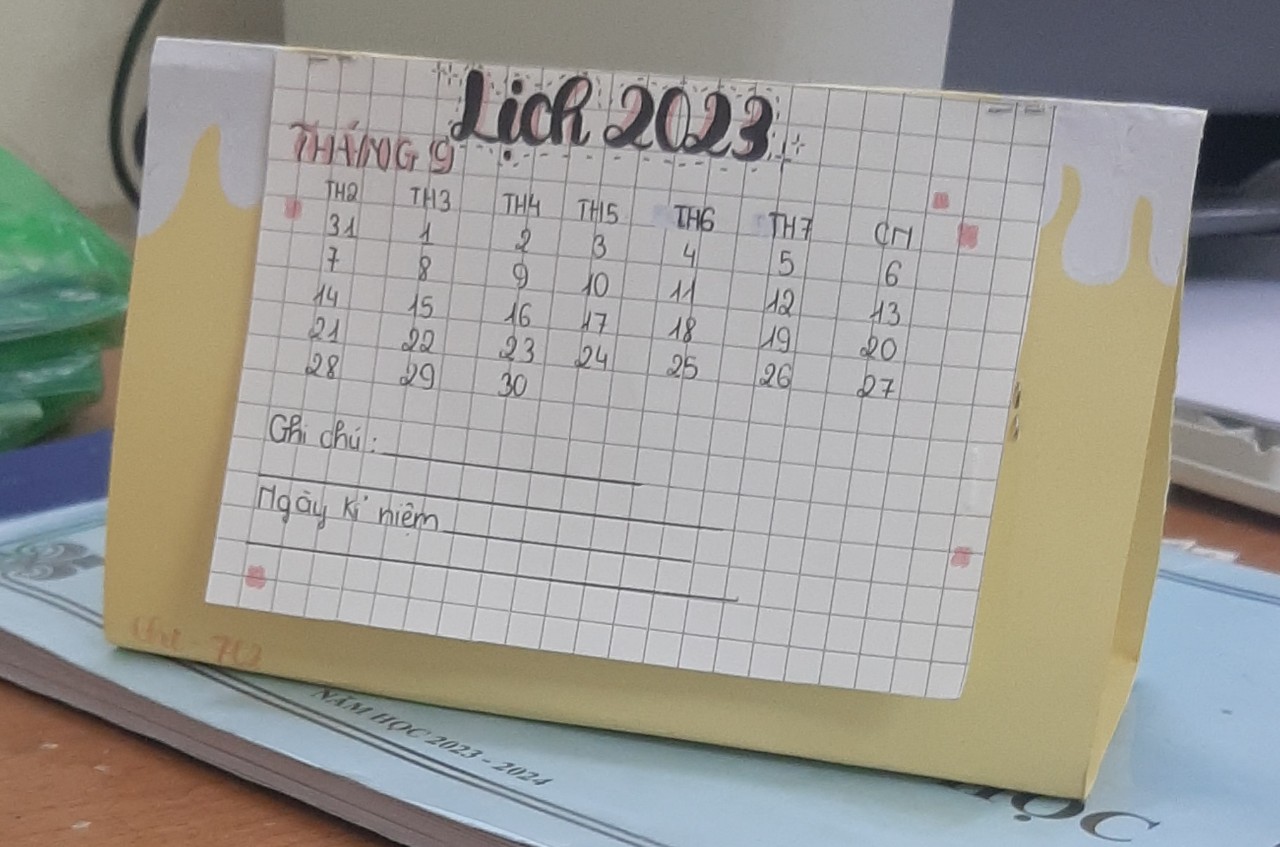 Lịch 2023
THÁNG 9
TH2 TH3 TH4 TH5 TH6 TH7 CN
31 1 2 3 4 5 6
7 8 9 10 11 12 13
14 15 16 17 18 19 20
21 22 23 24 25 26 27
28 29 30
Ghi chú:
Ngày kỉ niệm
NĂM HỌC 2023 - 2024